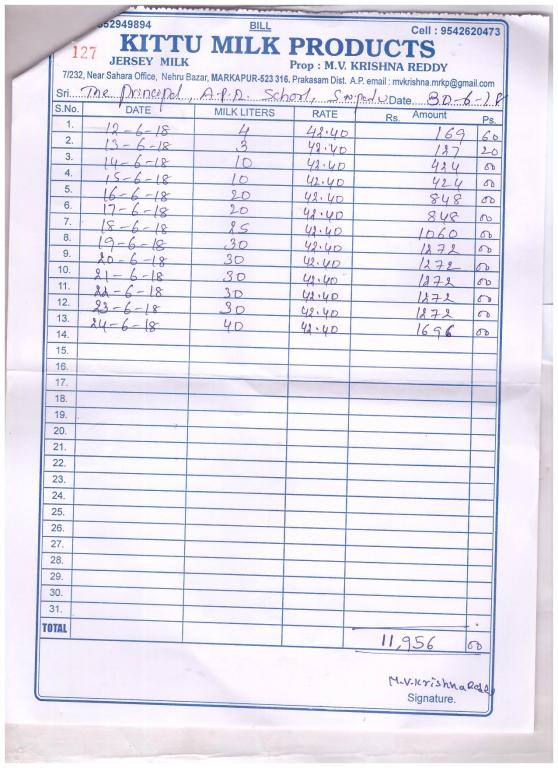 52949894 BILL Cell : 9542620473
127 KITTU MILK PRODUCTS
JERSEY MILK Prop : M.V. KRISHNA REDDY
7/232, Near Sahara Office, Nehru Bazar, MARKAPUR-523 316. Prakasam Dist. A.P. email : mvkrishna.mrkp@gmail.com
Sri The Principal, A.P.R. School, Date 30-6-18
S.No. DATE MILK LITERS RATE Rs. Amount Ps.
1. 12-6-18 4 42.40 169 60
2. 13-6-18 3 42.40 127 20
3. 14-6-18 10 42.40 424 00
4. 15-6-18 10 42.40 424 00
5. 16-6-18 20 42.40 848 00
6. 17-6-18 20 42.40 848 00
7. 18-6-18 25 42.40 1060 00
8. 19-6-18 30 42.40 1272 00
9. 20-6-18 30 42.40 1272 00
10. 21-6-18 30 42.40 1272 00
11. 22-6-18 30 42.40 1272 00
12. 23-6-18 30 42.40 1272 00
13. 24-6-18 40 42.40 1696 00
14.
15.
16.
17.
18.
19.
20.
21.
22.
23.
24.
25.
26.
27.
28.
29.
30.
31.
TOTAL 11,956 00
M.V.Krishna Reddy
Signature.